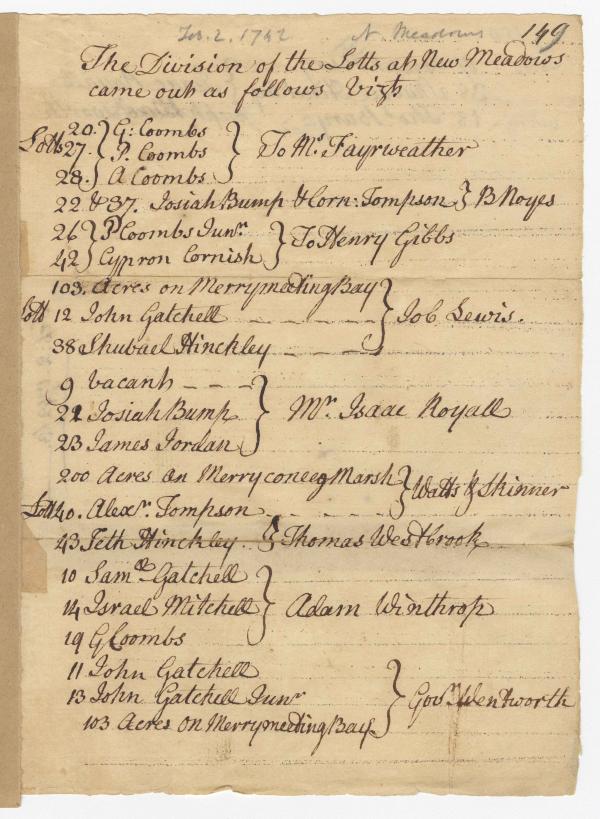 Feb. 2. 1742 N. Meadows 149
The Division of the Lotts at New Meadows
came out as follows Vizt
Lotts 20. G: Coombs
27. P. Coombs To Ms. Fayrweather
28. A Coombs
22 & 37. Josiah Bump & Corn: Tompson B Noyes
26 P Coombs Junr. To Henry Gibbs
42 Cypron Cornish
103. Acres on Merrymeeting Bay
Lott 12 John Gatchell Job Lewis.
38 Shubael Hinckley
9 vacant
21 Josiah Bump Mr. Isaac Royall
23 James Jordan
200 Acres on Merryconeeg Marsh Watts & Skinner
Lott 40. Alexr. Tompson
43 Seth Hinckley Thomas Westbrook
10 Samll Gatchell
14 Israel Mitchell Adam Winthrop
19 G Coombs
11 John Gatchell
13 John Gatchell Junr Govr. Wentworth
103 Acres on Merrymeeting Bay